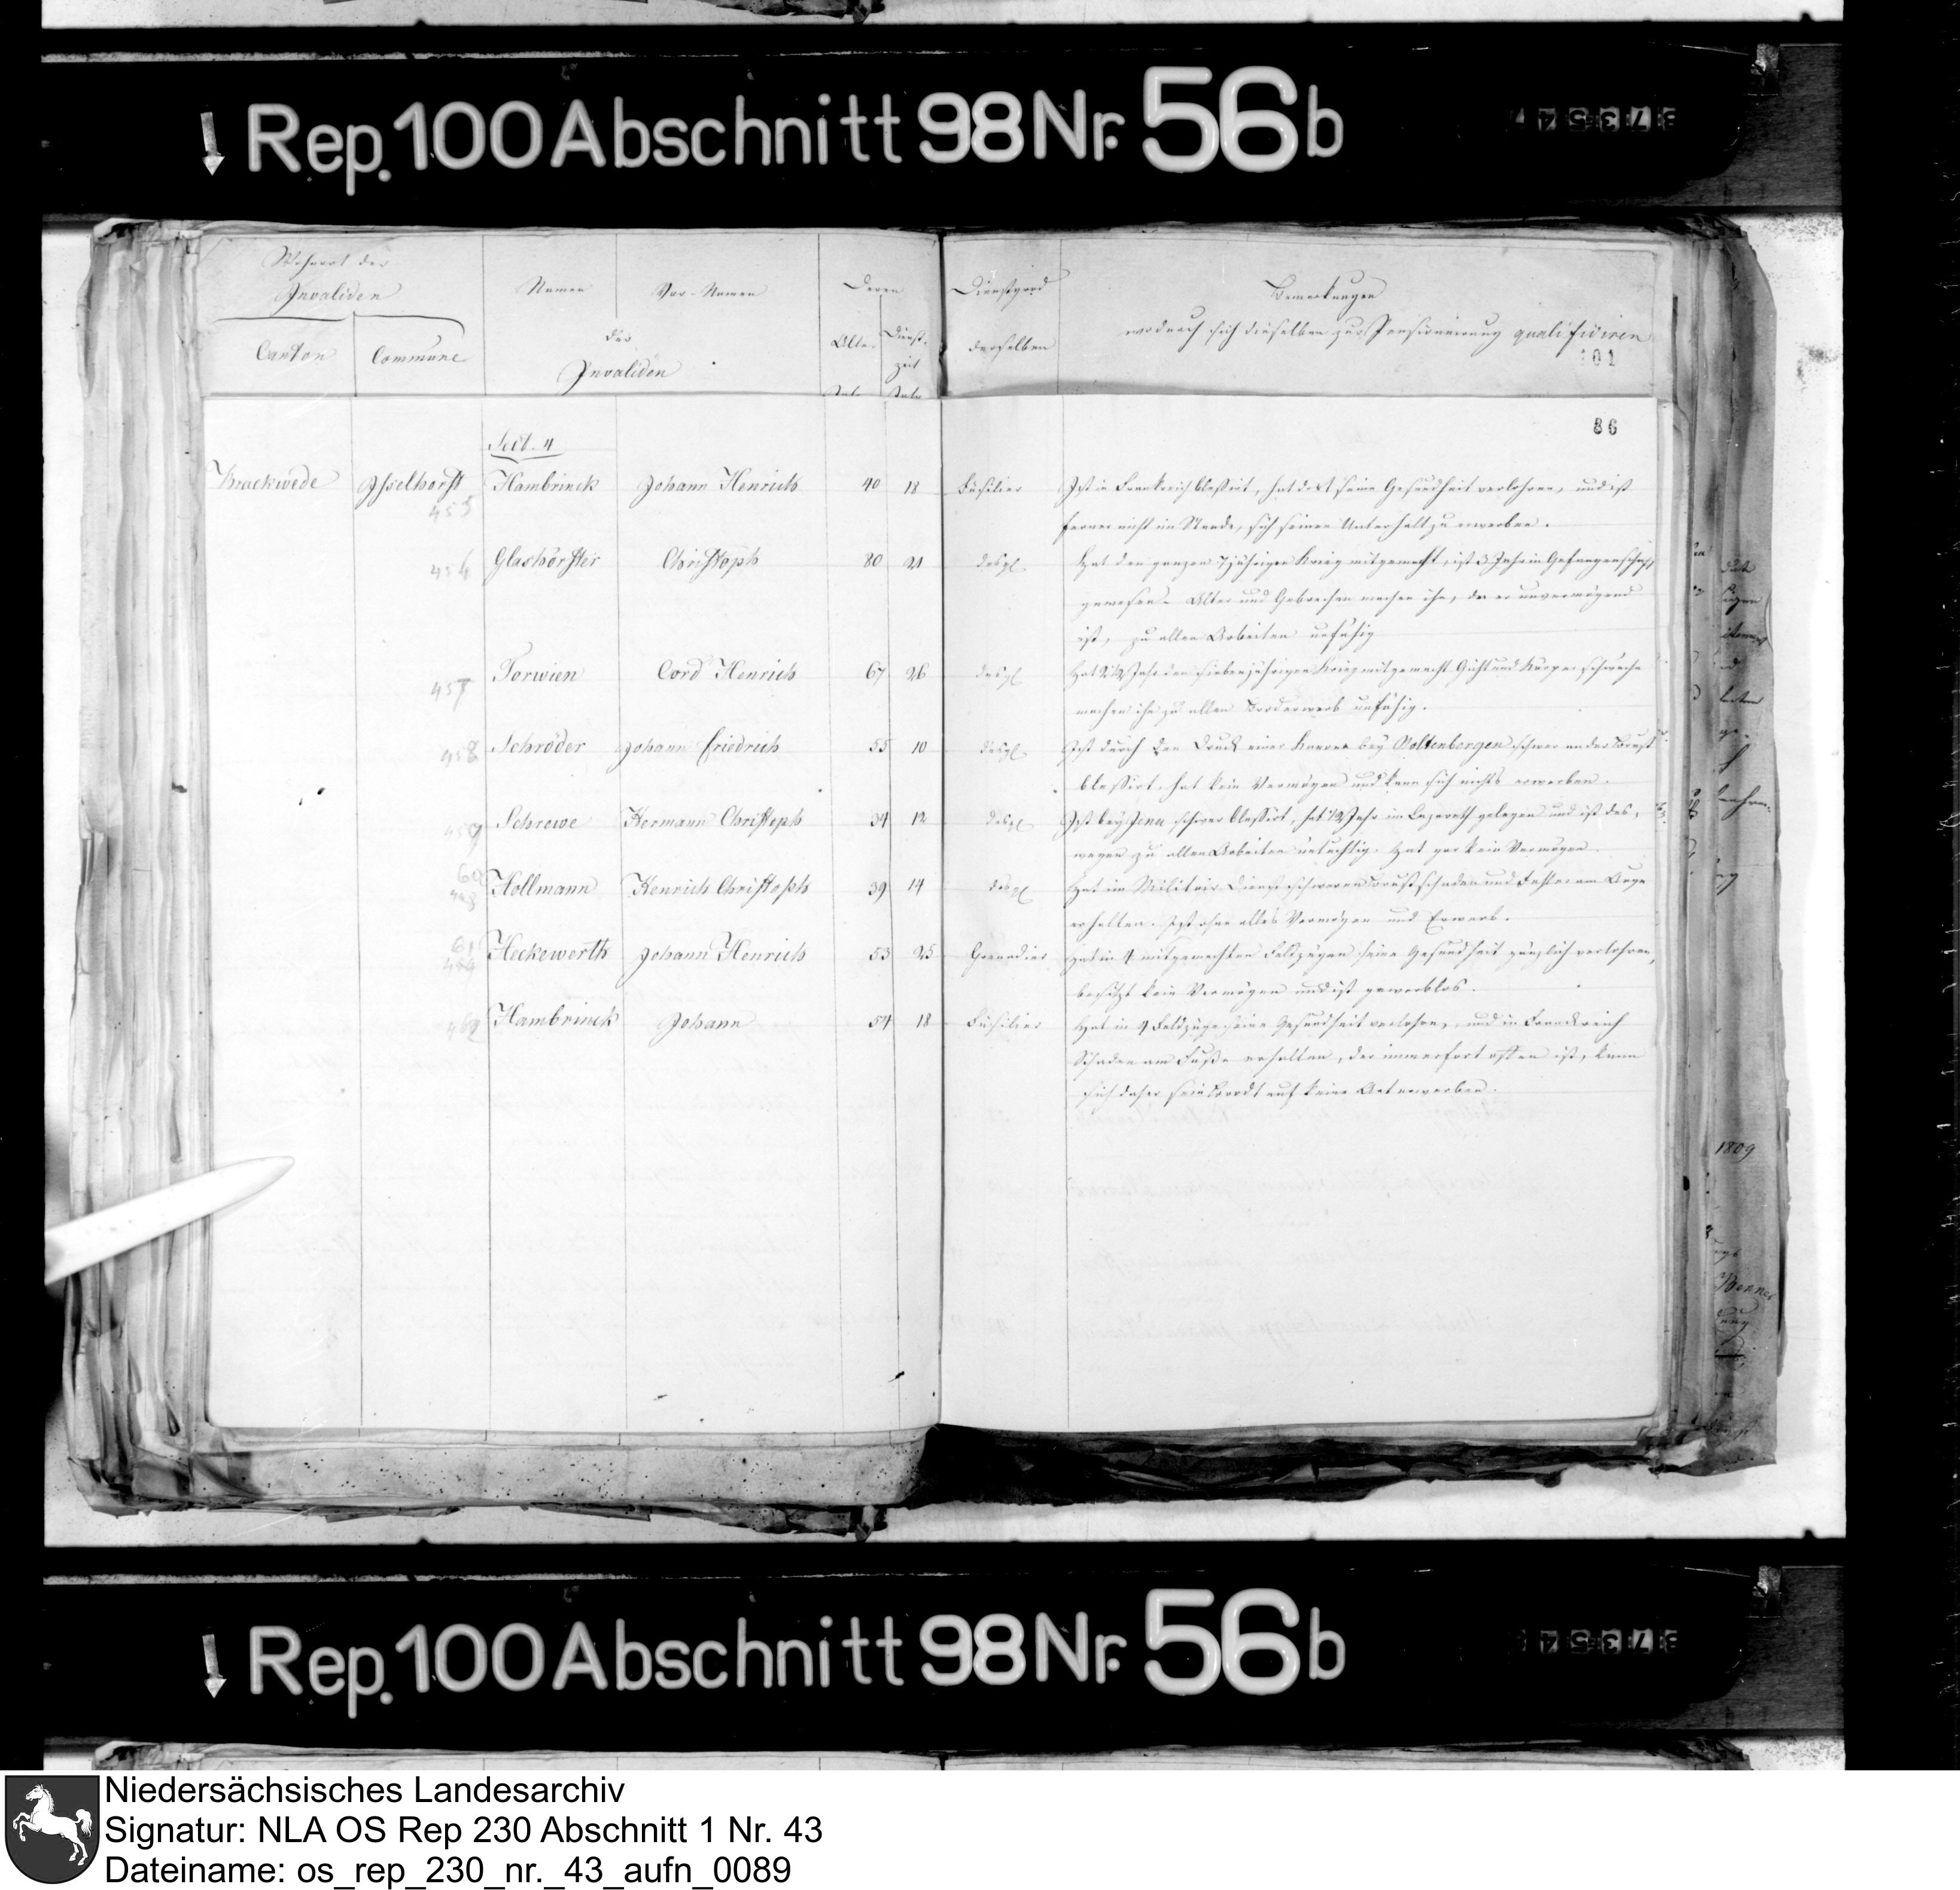 Rep. 100 Abschnitt 98 Nr. 56 b
Wohnort der Invaliden
Namen
Vor-Namen
Deren
Dienstgrad
Bemerkungen
Canton
Commune
der
Invaliden
Alter
Dienst-
zeit
derselben
wodurch sich dieselben zur Pensionierung qualificiren
101
86
Sect. 4
Brackwede Isselhorst Hambrinck Johann Henrich 40 18 Füsilier Ist in Frankreich blessirt, hat dort seine Gesundheit verlohren, und ist
455
ferner nicht im Stande, sich seinen Unterhalt zu erwerben.
456 Glashörster Christoph 80 21 desgl Hat den ganzen 7jährigen Krieg mitgemacht, ist 3 Jahr in Gefangenschaft
gewesen. Alter und Gebrechen machen ihn, da er unvermögend
ist, zu allen Arbeiten unfähig
457 Torwien Cord Henrich 67 26 desgl Hat 2 1/2 Jahr den siebenjährigen Krieg mitgemacht Gicht und Körperschwäche
machen ihn zu allen Broderwerb unfähig.
458 Schröder Johann Friedrich 55 10 desgl Ist durch den Druck einer Kanone bey schwer an der Brust
blessirt, hat kein Vermögen und kann sich nichts erwerben.
459 Schrewe Hermann Christoph 34 12 desgl Ist bey Jena schwer blessirt, hat 1/2 Jahr im Lazareth gelegen und ist des,
wegen zu allen Arbeiten untüchtig. Hat gar kein Vermögen.
60 Hollmann Henrich Christoph 39 14 desgl Hat im Militair Dienst schweren Brustschaden und Fehler am Auge
erhalten. Ist ohne alles Vermögen und Erwerb.
61 Heckewerth Johann Henrich 53 25 Grenadier Hat in 4 mitgemachten Feldzügen seine Gesundheit gänzlich verlohren,
besitzt kein Vermögen und ist gewerblos.
462 Hambrinck Johann 54 18 Füsilier Hat in 4 Feldzügen seine Gesundheit verlohren, und in Franckreich
Schaden am Fuße erhalten, der immerfort offen ist, kann
sich daher sein Brodt auf keine Art erwerben.
1809
Rep. 100 Abschnitt 98 Nr. 56 b
Niedersächsisches Landesarchiv
Signatur: NLA OS Rep 230 Abschnitt 1 Nr. 43
Dateiname: os_rep_230_nr._43_aufn_0089